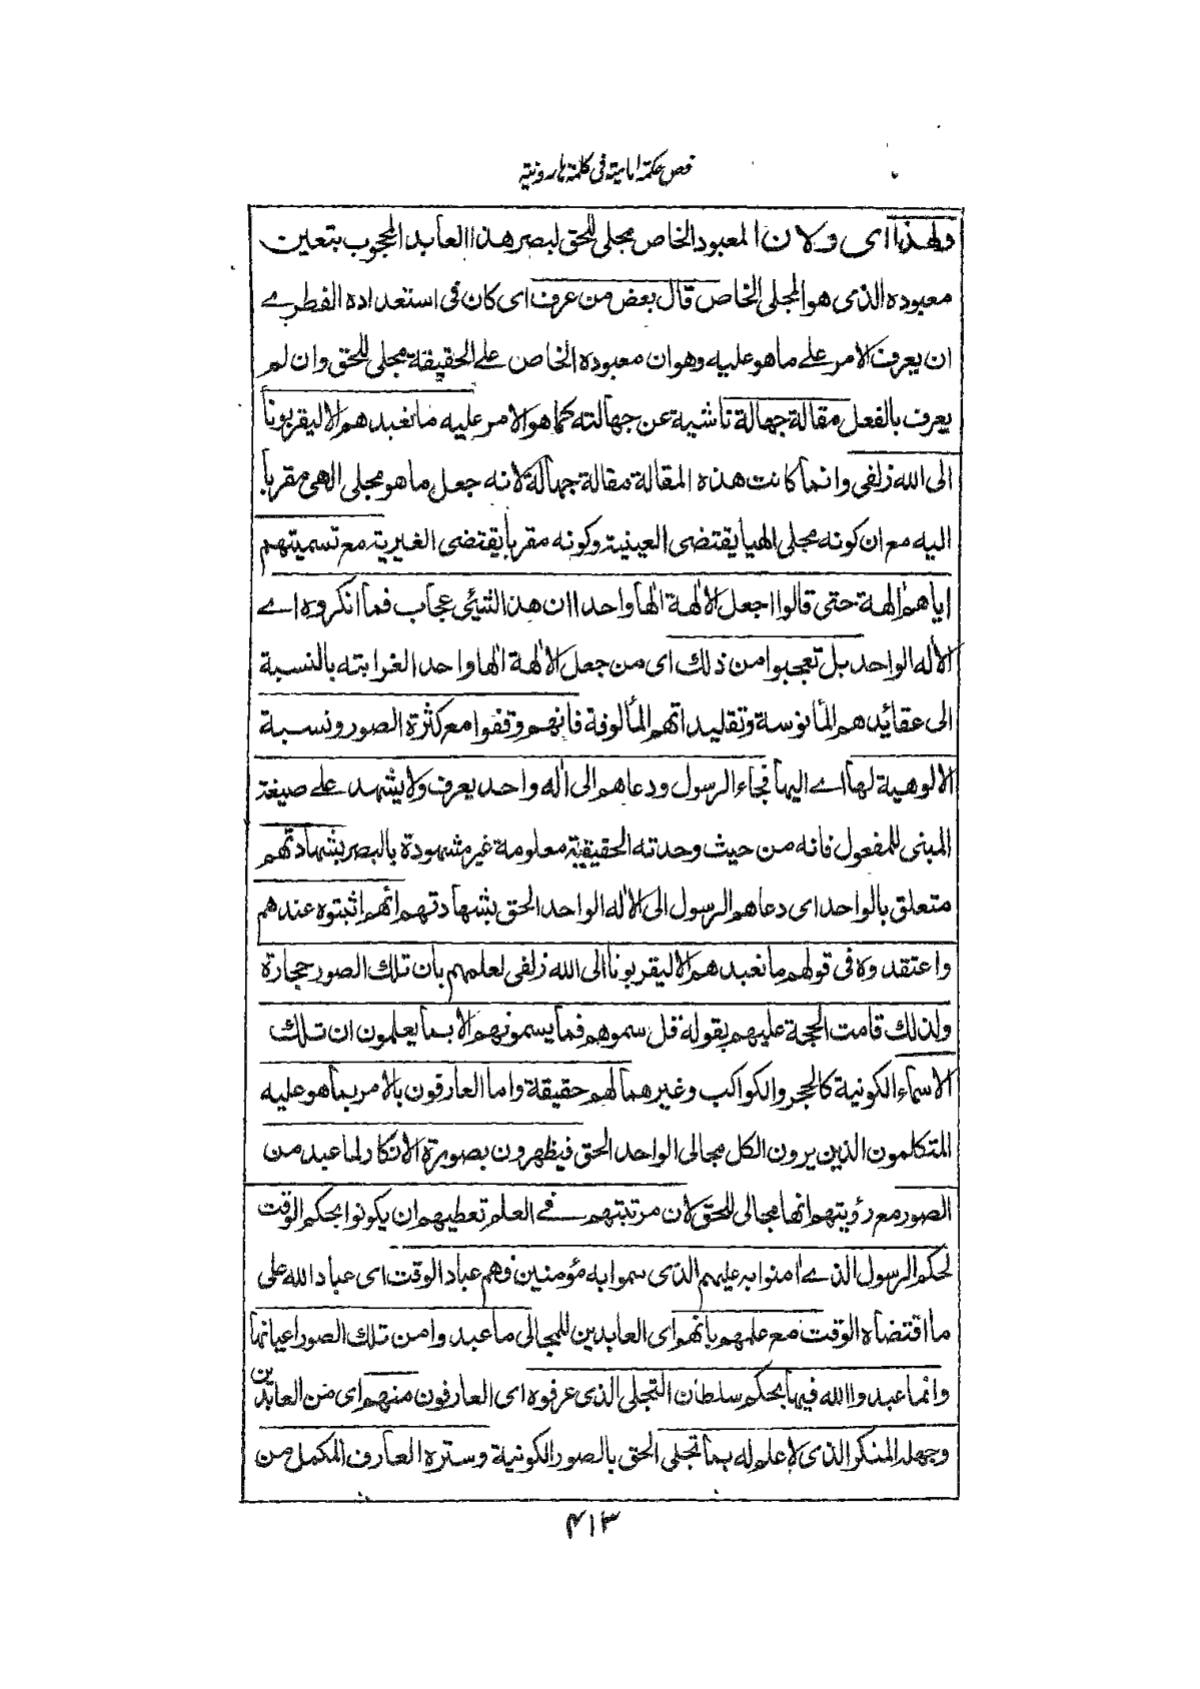 فص حكمة امامية فى كلمة هارونية
ولهذا اى ولان المعبود الخاص مجلى للحق لبصر هذا العابد المحجوب بتعين
معبوده الذى هو المجلى الخاص قال بعض من عرف اى كان فى استعداده الفطرے
ان يعرف الامر علے ما هو عليه وهو ان معبوده الخاص علے الحقيقة مجلى للحق وان لم
يعرف بالفعل مقالة جهالة ناشية عن جهالته كما هو الامر عليه ما نعبدهم الا ليقربونا
الى الله زلفى وانما كانت هذه المقالة مقالة جهالة لانه جعل ما هو مجلى الهى مقربا
اليه مع ان كونه مجلى الهيا يقتضى العينية وكونه مقربا يقتضى الغيرية مع تسميتهم
اياهم الهة حتى قالوا اجعل الالهة الها واحدا ان هذا لشئ عجاب فما انكروه اے
الاله الواحد بل تعجبوا من ذلك اى من جعل الالهة الها واحدا لغرابته بالنسبة
الى عقائدهم المأنوسة وتقليداتهم المألوفة فانهم وقفوا مع كثرة الصور ونسبة
الالوهية لها اے اليها فجاء الرسول ودعاهم الى اله واحد يعرف ولا يشهد علے صيغة
المبنى للمفعول فانه من حيث وحدته الحقيقية معلومة غير مشهودة بالبصر بشهادتهم
متعلق بالواحد اى دعاهم الرسول الى الاله الواحد الحق بشهادتهم انهم اثبتوه عندهم
واعتقدوه فى قولهم ما نعبدهم الا ليقربونا الى الله زلفى لعلمهم بان تلك الصور حجارة
ولذلك قامت الحجة عليهم بقوله قل سموهم فما يسمونهم الا بما يعلمون ان تلك
الاسماء الكونية كالحجر والكواكب وغيرهما لهم حقيقة واما العارفون بالامر بما هو عليه
المتكلمون الذين يرون الكل مجالى الواحد الحق فيظهرون بصورة الانكار لما عبد من
الصور مع رؤيتهم انها مجالى للحق لان مرتبتهم فے العلم تعطيهم ان يكونوا بحكم الوقت
لحكم الرسول الذے امنوا به عليهم الذى سموا به مؤمنين فهم عباد الوقت اى عباد الله على
ما اقتضاه الوقت مع علمهم بانهم اى العابدين للمجالى ما عبدوا من تلك الصور اعيانها
وانما عبدوا الله فيها بحكم سلطان التجلى الذى عرفوه اى العارفون منهم اى من العابدين
وجهله المنكر الذى لا علم له بما تجلى الحق بالصور الكونية وستره العارف المكمل من
۴۱۳